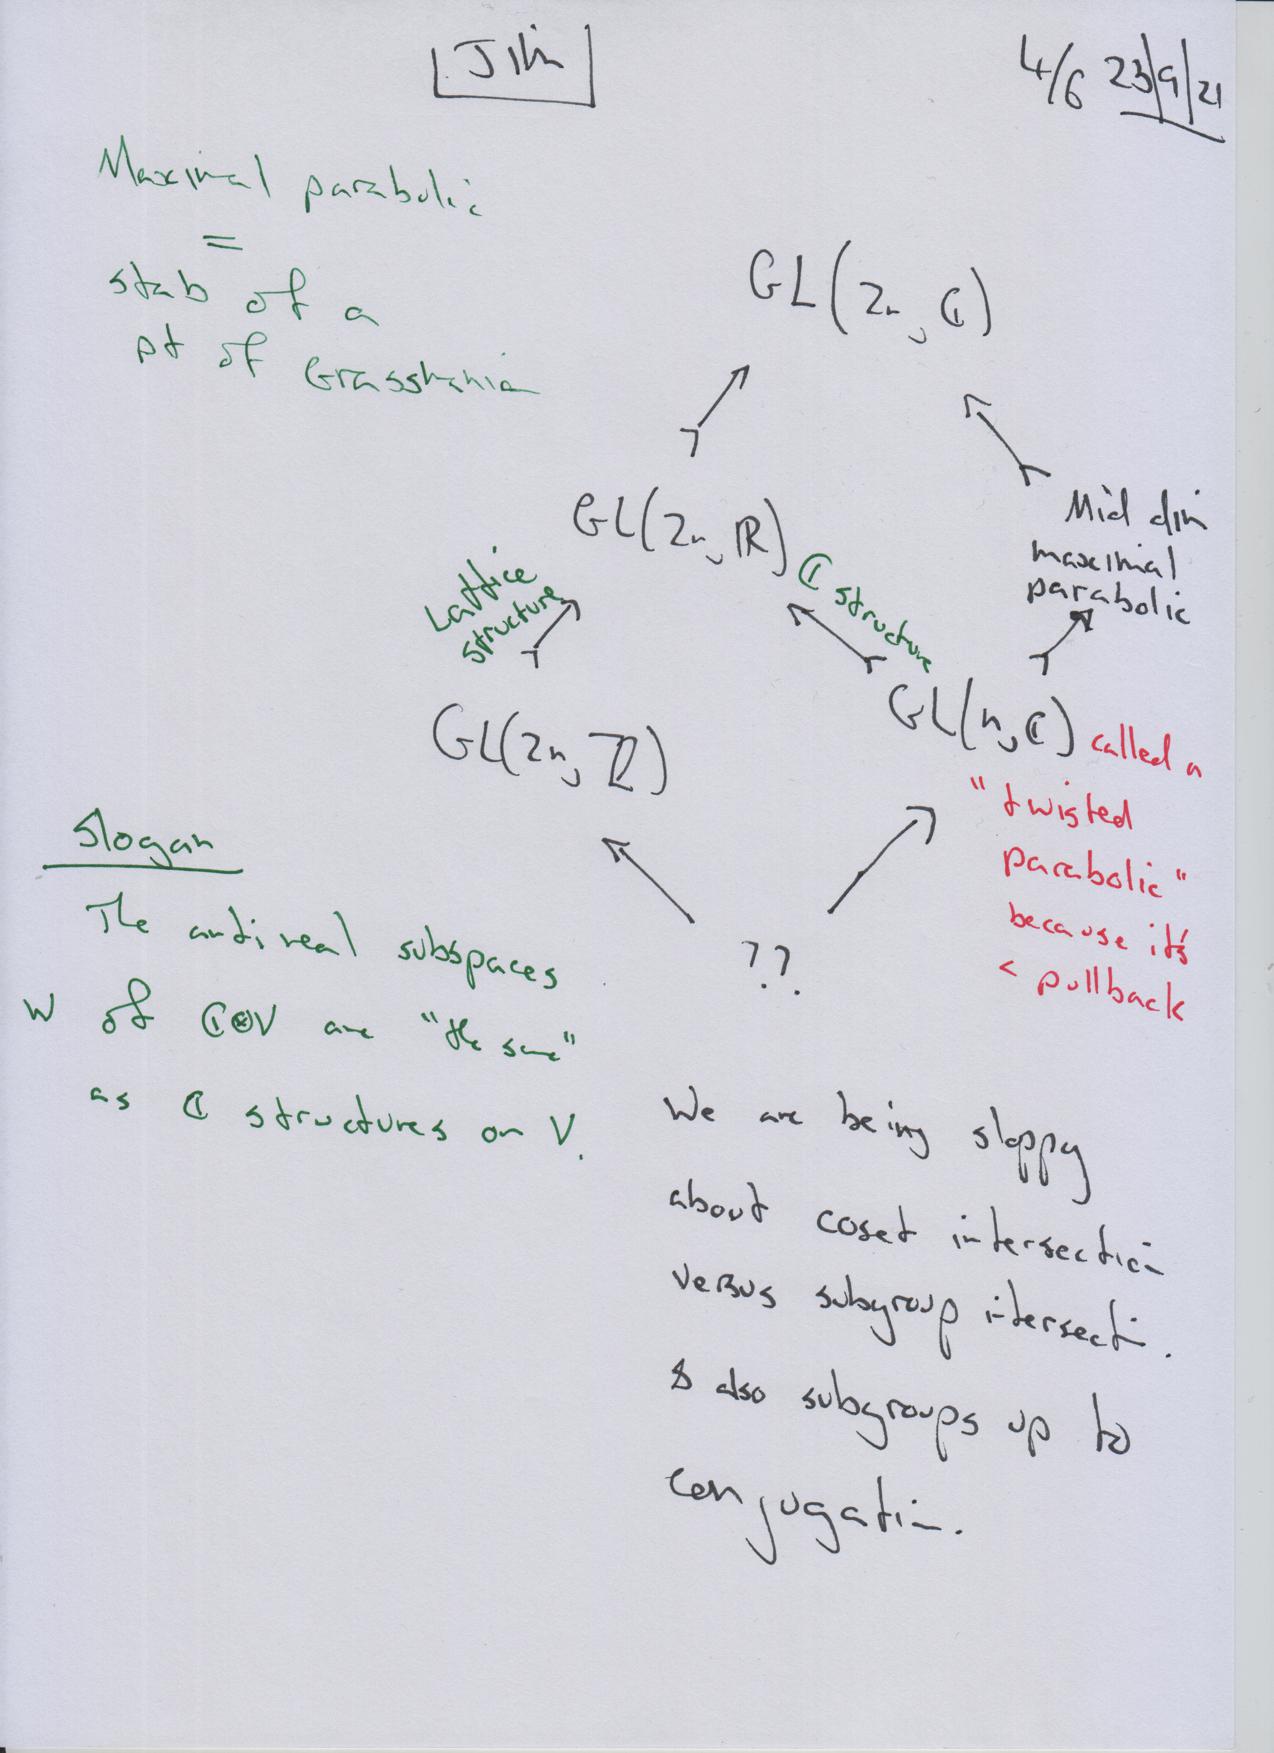 Jim
4/6 23/9/21
Maximal parabolic
=
stab of a
pt of Grassmannian
GL(2n, ℂ)
GL(2n, ℝ)
Mid dim
maximal
parabolic
Lattice
structure
ℂ structure
GL(2n, ℤ)
GL(n, ℂ) called a
"twisted
parabolic"
because it's
< pullback
??
Slogan
The antireal subspaces
W of ℂ⊗V are "the same"
as ℂ structures on V.
We are being sloppy
about coset intersection
versus subgroup intersection.
& also subgroups up to
conjugation.